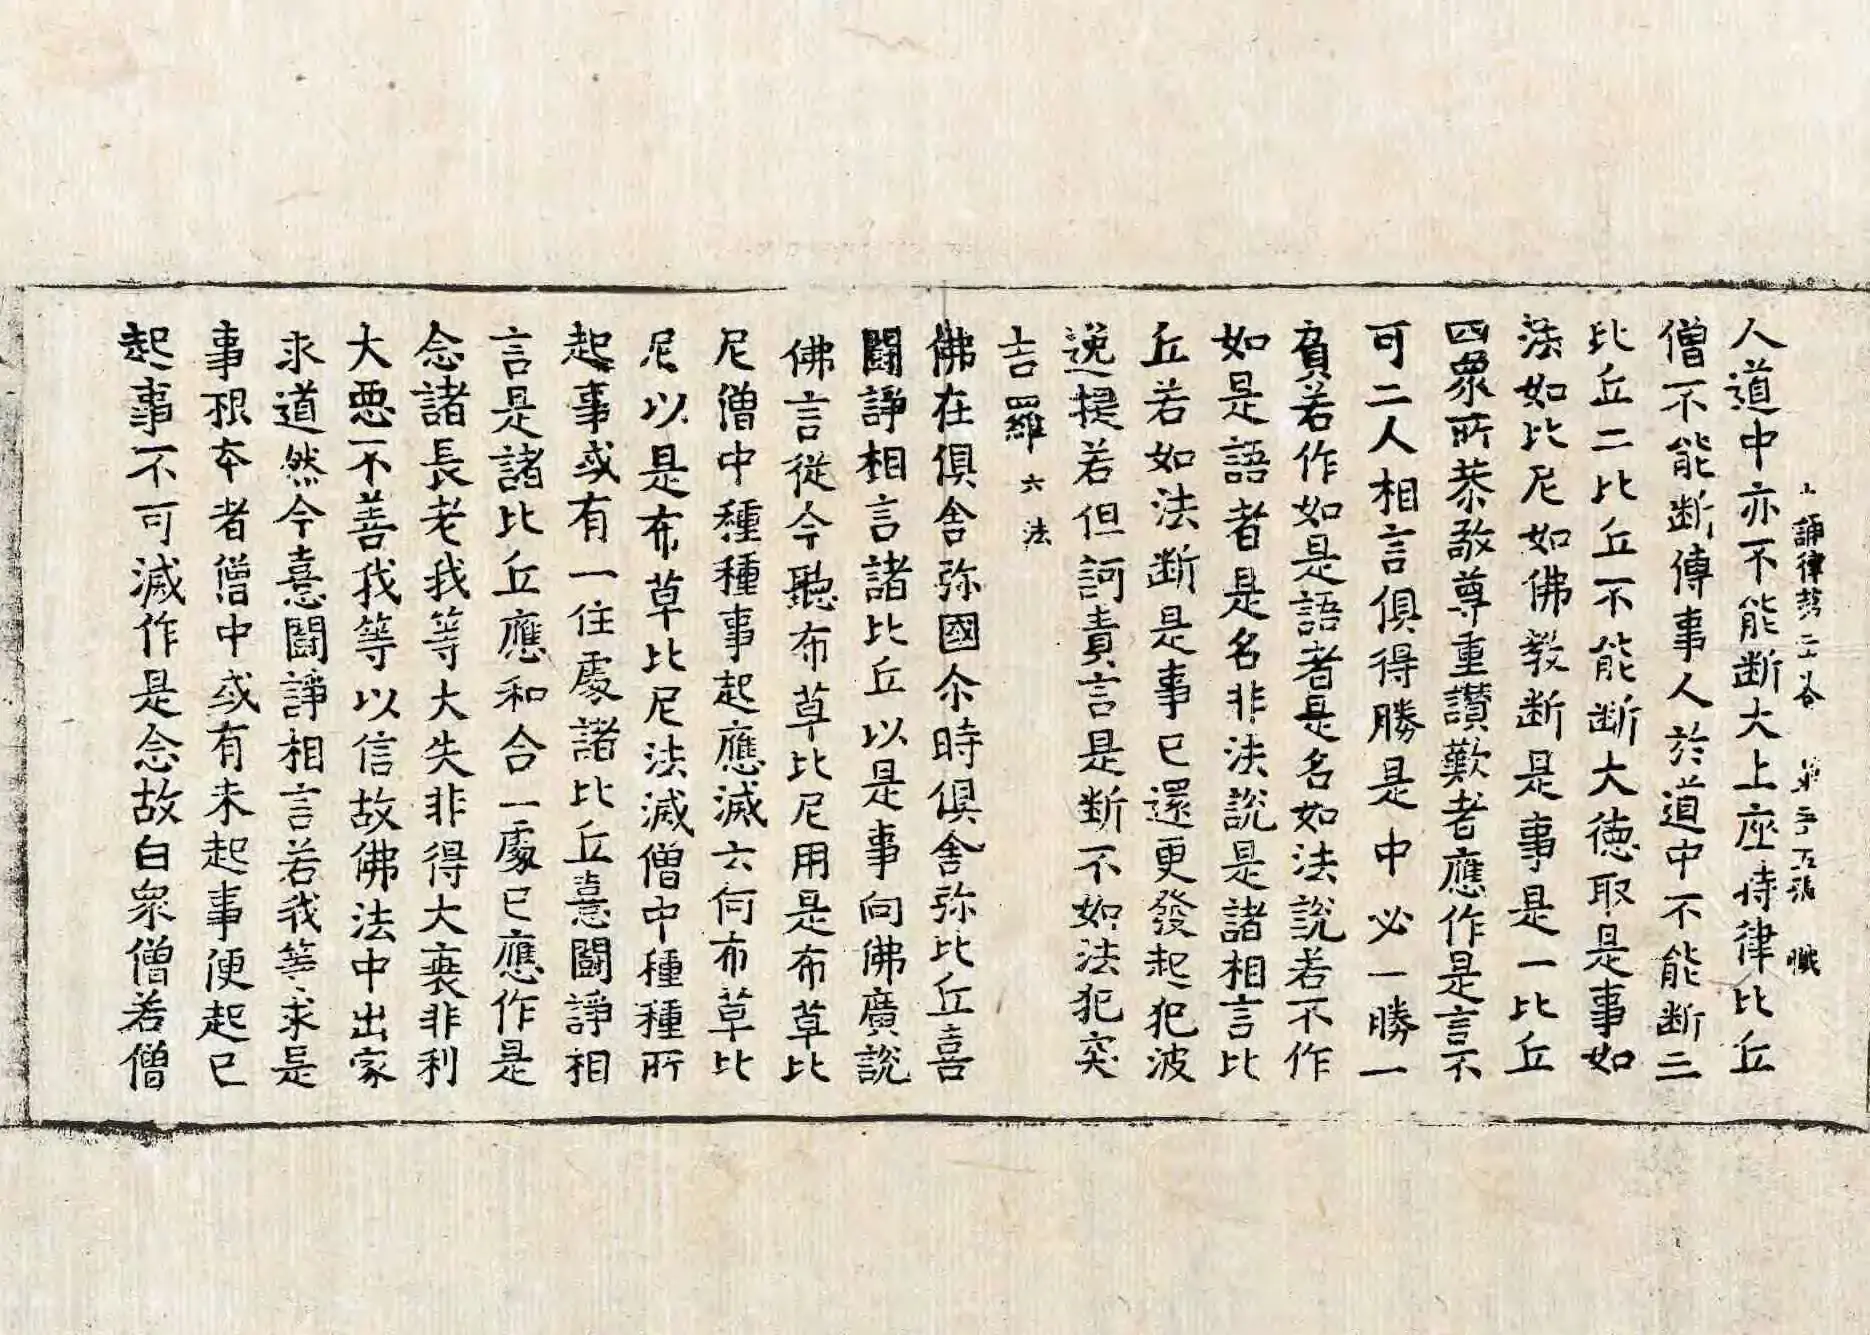 十誦律第二十卷 第三十五張 職
人道中亦不能断大上座持律比丘
僧不能断傳事人於道中不能断二
比丘二比丘不能断大徳取是事如
法如比尼如佛教断是事是一比丘
四眾所恭敬尊重讃歎者應作是言不
可二人相言俱得勝是中必一勝一
負若作如是語者是名如法說若不作
如是語者是名非法說是諸相言比
丘若如法断是事已還更發起犯波
逸提若但訶責言是断不如法犯突
吉羅 六法
佛在俱舍弥國尒時俱舍弥比丘喜
鬪諍相言諸比丘以是事向佛廣說
佛言從今聽布草比尼用是布草比
尼僧中種種事起應滅云何布草比
尼以是布草比尼法滅僧中種種所
起事或有一住處諸比丘憙鬪諍相
言是諸比丘應和合一處已應作是
念諸長老我等大失非得大衰非利
大惡不善我等以信故佛法中出家
求道然今憙鬪諍相言若我等求是
事根本者僧中或有未起事便起已
起事不可滅作是念故白眾僧若僧